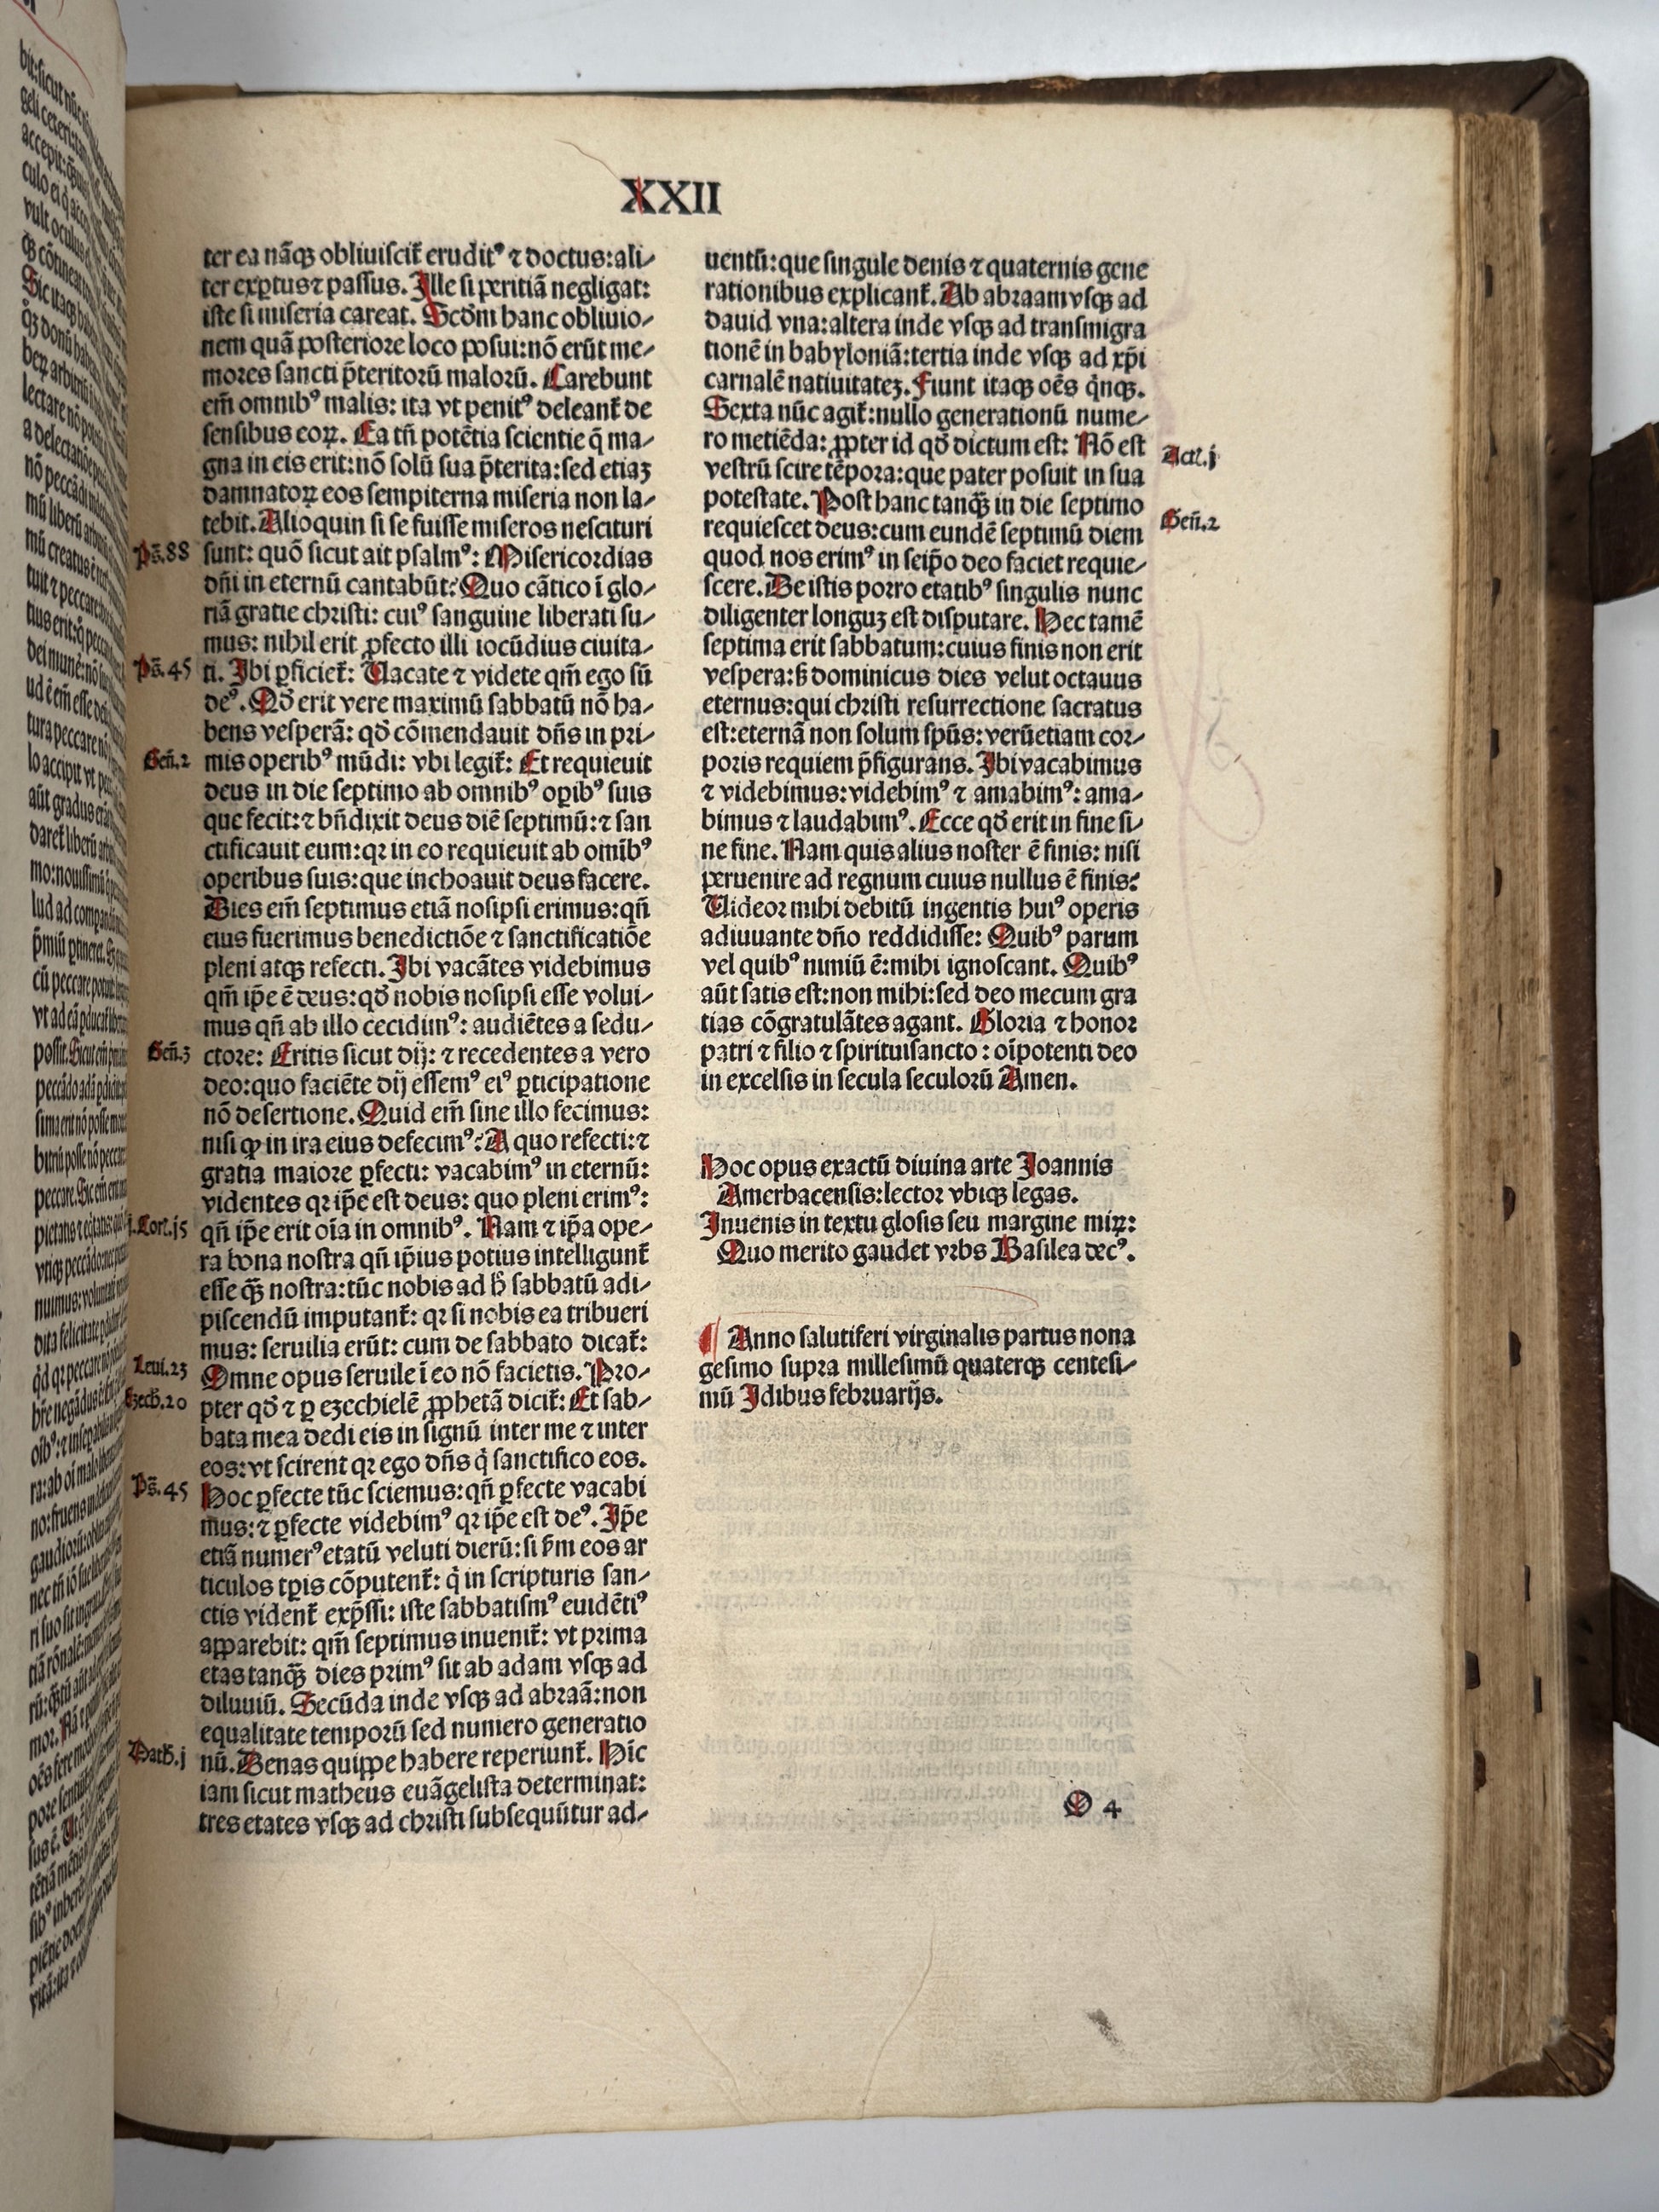 XXII
ter ea nāqꝫ obliuiscit̄ erudit⁹ ⁊ doctus: ali⸗
ter exꝑtus ⁊ passus. Ille si ꝑitiā negligat:
iste si miseria careat. Scḋm hanc obliuio⸗
nem quā posteriore loco posui: nō erūt me⸗
mores sancti p̄teritorū malorū. Carebunt
em̄ omnib⁹ malis: ita vt penit⁹ deleant̄ de
sensibus eoꝝ. Ea tn̄ potētia scientie q̄ ma⸗
gna in eis erit: nō solū sua p̄terita: sed etiaꝫ
damnatoꝝ eos sempiterna miseria non la⸗
tebit. Alioquin si se fuisse miseros nescituri
Ps̄. 88 sunt: quō sicut ait psalm⁹: Misericordias
dn̄i in eternū cantabūt: Quo cātico ī glo⸗
riā gratie christi: cui⁹ sanguine liberati su⸗
mus: nihil erit ꝓfecto illi iocūdius ciuita⸗
Ps̄. 45 ti. Ibi ꝑficiet̄: Uacate ⁊ videte qm̄ ego sū
de⁹. Qḋ erit vere maximū sabbatū nō ha⸗
bens vesperā: qḋ cōmendauit dn̄s in pri⸗
Gen̄. 2 mis operib⁹ mūdi: vbi legit̄: Et requieuit
deus in die septimo ab omnib⁹ oꝑib⁹ suis
que fecit: ⁊ bn̄dixit deus diē septimū: ⁊ san
ctificauit eum: qꝛ in eo requieuit ab omīb⁹
operibus suis: que inchoauit deus facere.
Dies em̄ septimus etiā nosipsi erimus: qn̄
eius fuerimus benedictiōe ⁊ sanctificatiōe
pleni atqꝫ refecti. Ibi vacātes videbimus
qm̄ ip̄e ē deus: qḋ nobis nosipsi esse volui⸗
mus qn̄ ab illo cecidim⁹: audiētes a sedu⸗
Gen̄. 3 ctore: Eritis sicut dij: ⁊ recedentes a vero
deo: quo faciēte dij essem⁹ ei⁹ ꝑticipatione
nō desertione. Quid em̄ sine illo fecimus:
nisi qꝙ in ira eius defecim⁹: A quo refecti: ⁊
gratia maiore ꝑfecti: vacabim⁹ in eternū:
videntes qꝛ ip̄e est deus: quo pleni erim⁹:
j. Cor̄. j5 qn̄ ip̄e erit oīa in omnib⁹. Nam ⁊ ip̄a ope⸗
ra bona nostra qn̄ ip̄ius potius intelligunt̄
esse qꝫ̄ nostra: tūc nobis ad h̄ sabbatū adi⸗
piscendū imputant̄: qꝛ si nobis ea tribueri
mus: seruilia erūt: cum de sabbato dicat̄:
Leui. 23 Omne opus seruile ī eo nō facietis. Pro⸗
Ezech. 20 pter qḋ ⁊ ꝑ ezechielē ꝓphetā dicit̄: Et sab⸗
bata mea dedi eis in signū inter me ⁊ inter
eos: vt scirent qꝛ ego dn̄s q̇ sanctifico eos.
Ps̄. 45 Hoc ꝑfecte tūc sciemus: qn̄ ꝑfecte vacabi
mus: ⁊ ꝑfecte videbim⁹ qꝛ ip̄e est de⁹. Ip̄e
etiā numer⁹ etatū veluti dierū: si s̄m eos ar
ticulos tp̄is cōputent̄: q̇ in scripturis san⸗
ctis vident̄ exp̄ssi: iste sabbatism⁹ euidēti⁹
apparebit: qm̄ septimus inuenit̄: vt prima
etas tanqꝫ̄ dies prim⁹ sit ab adam vsqꝫ ad
diluuiū. Secūda inde vsqꝫ ad abraā: non
equalitate temporū sed numero generatio
Math̄. j nū. Denas quippe habere reperiunt̄. Hīc
iam sicut matheus euāgelista determinat:
tres etates vsqꝫ ad christi subsequūtur ad⸗
uentū: que singule denis ⁊ quaternis gene
rationibus explicant̄. Ab abraam vsqꝫ ad
dauid vna: altera inde vsqꝫ ad transmigra
tionē in babyloniā: tertia inde vsqꝫ ad xp̄i
carnalē natiuitateꝫ. Fiunt itaqꝫ oēs q̇nqꝫ.
Sexta nūc agit̄: nullo generationū nume⸗
ro metiēda: ꝓpter id qḋ dictum est: Nō est
Act̄. j
vestrū scire tēpora: que pater posuit in sua
potestate. Post hanc tanqꝫ̄ in die septimo
Gen̄. 2
requiescet deus: cum eundē septimū diem
quod nos erim⁹ in seip̄o deo faciet requie⸗
scere. De istis porro etatib⁹ singulis nunc
diligenter longuꝫ est disputare. Hec tamē
septima erit sabbatum: cuius finis non erit
vespera: sꝫ dominicus dies velut octauus
eternus: qui christi resurrectione sacratus
est: eternā non solum sp̄us: verūetiam cor⸗
poris requiem p̄figurans. Ibi vacabimus
⁊ videbimus: videbim⁹ ⁊ amabim⁹: ama⸗
bimus ⁊ laudabim⁹. Ecce qḋ erit in fine si⸗
ne fine. Nam quis alius noster ē finis: nisi
ꝑuenire ad regnum cuius nullus ē finis:
Uideor mihi debitū ingentis hui⁹ operis
adiuuante dn̄o reddidisse: Quib⁹ parum
vel quib⁹ nimiū ē: mihi ignoscant. Quib⁹
aūt satis est: non mihi: sed deo mecum gra
tias cōgratulātes agant. Gloria ⁊ honor
patri ⁊ filio ⁊ spirituisancto: oīpotenti deo
in excelsis in secula seculorū Amen.
Hoc opus exactū diuina arte Joannis
Amerbacensis: lector vbiqꝫ legas.
Inuenis in textu glosis seu margine miꝝ:
Quo merito gaudet vrbs Basilea dec⁹.
¶ Anno salutiferi virginalis partus nona
gesimo supra millesimū quaterqꝫ centesi⸗
mū Idibus februarijs.
1490
O 4